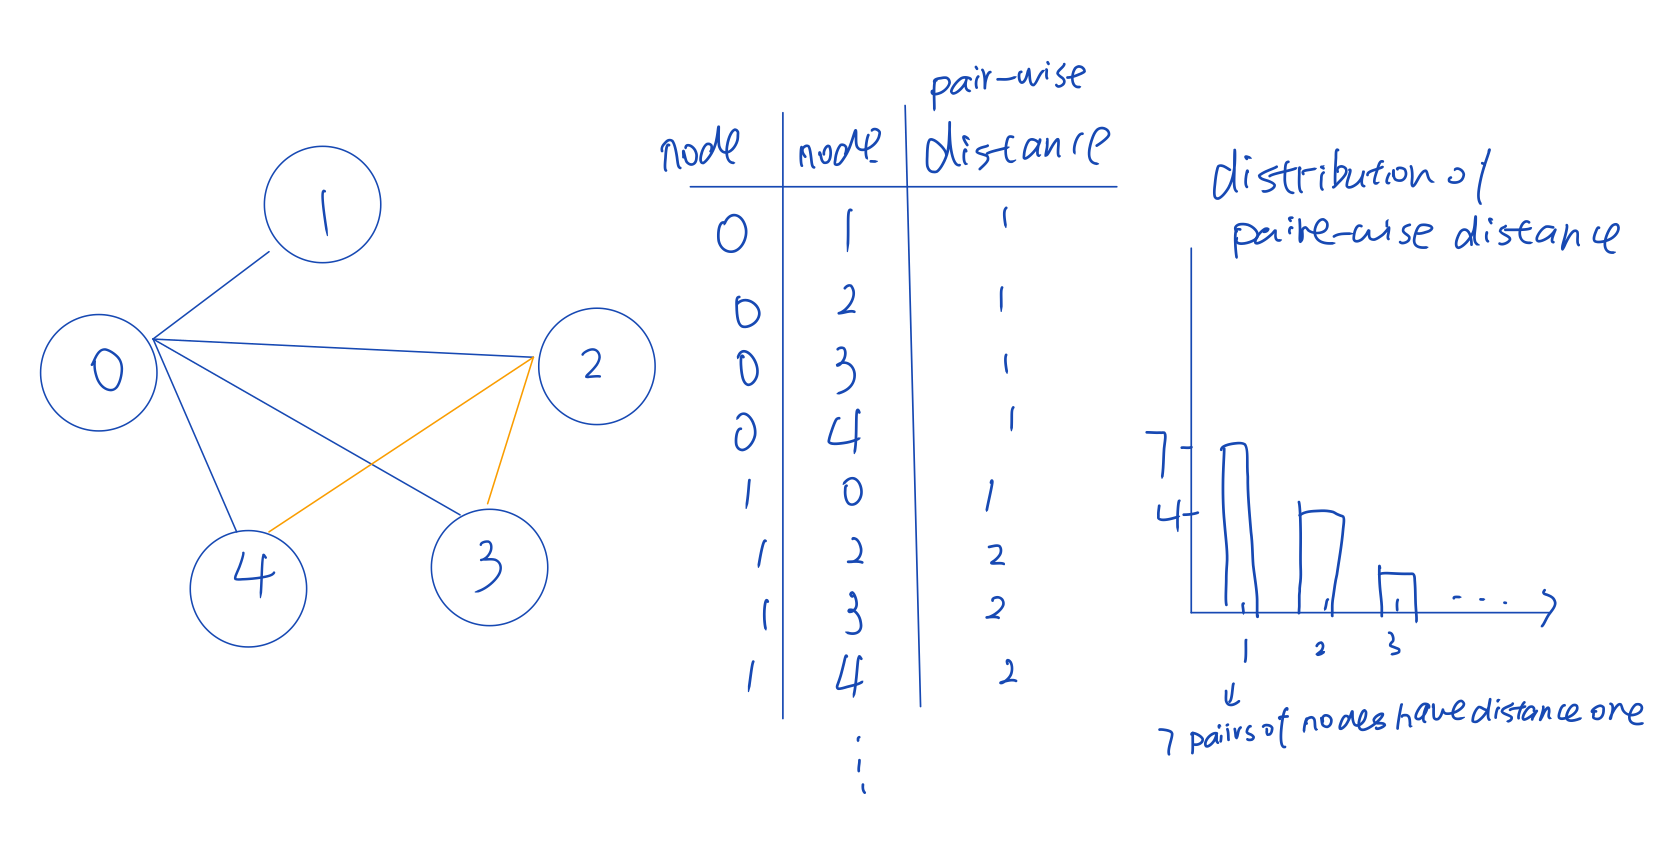 1
0
2
4
3
pair-wise
node node distance
0 1 1
0 2 1
0 3 1
0 4 1
1 0 1
1 2 2
1 3 2
1 4 2
distribution of
paire-wise distance
7
4
1 2 3 ....
7 paiirs of nodes have distance one